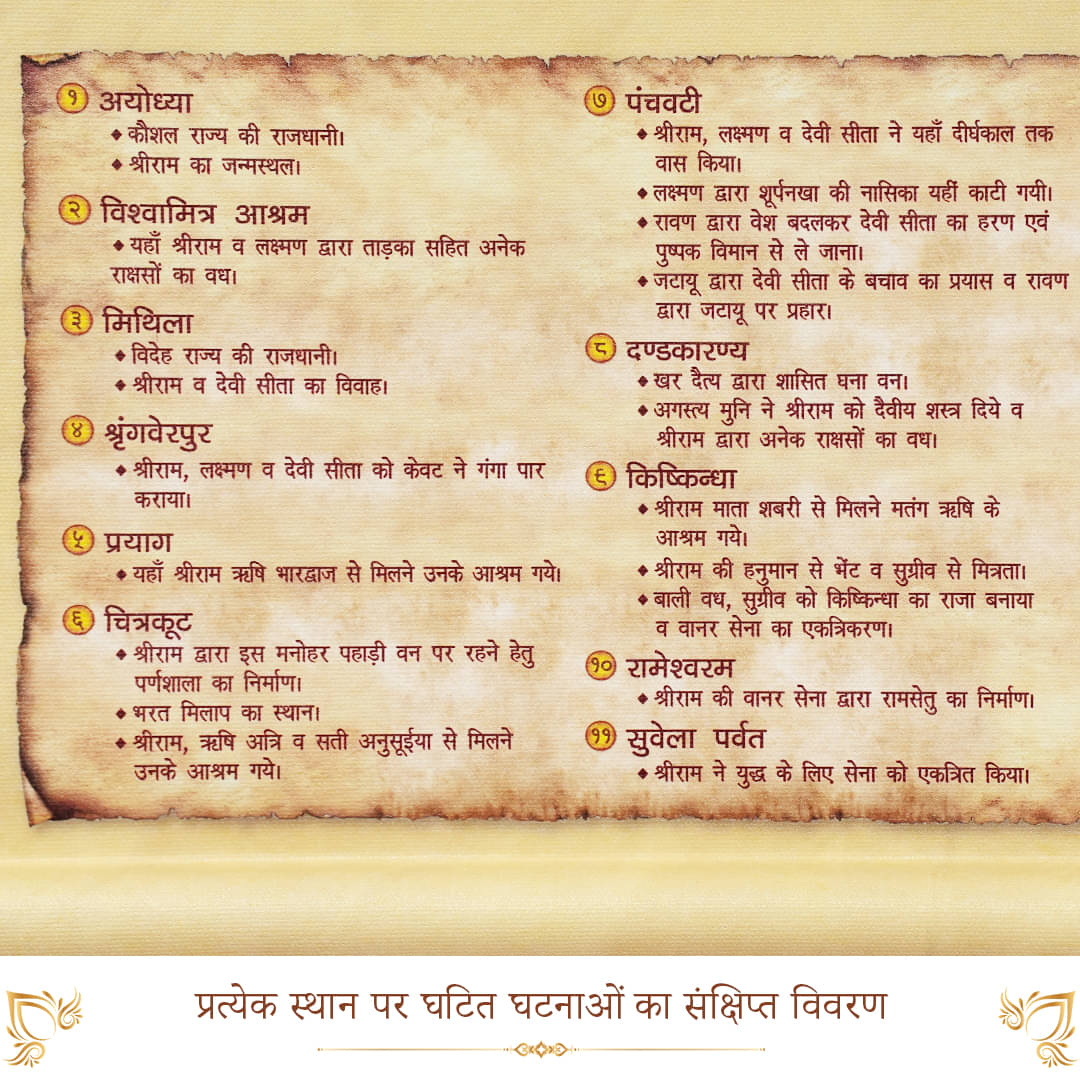 १ अयोध्या
◆ कौशल राज्य की राजधानी।
◆ श्रीराम का जन्मस्थल।
२ विश्वामित्र आश्रम
◆ यहाँ श्रीराम व लक्ष्मण द्वारा ताड़का सहित अनेक
राक्षसों का वध।
३ मिथिला
◆ विदेह राज्य की राजधानी।
◆ श्रीराम व देवी सीता का विवाह।
४ श्रृंगवेरपुर
◆ श्रीराम, लक्ष्मण व देवी सीता को केवट ने गंगा पार
कराया।
५ प्रयाग
◆ यहाँ श्रीराम ऋषि भारद्वाज से मिलने उनके आश्रम गये।
६ चित्रकूट
◆ श्रीराम द्वारा इस मनोहर पहाड़ी वन पर रहने हेतु
पर्णशाला का निर्माण।
◆ भरत मिलाप का स्थान।
◆ श्रीराम, ऋषि अत्रि व सती अनुसूईया से मिलने
उनके आश्रम गये।
७ पंचवटी
◆ श्रीराम, लक्ष्मण व देवी सीता ने यहाँ दीर्घकाल तक
वास किया।
◆ लक्ष्मण द्वारा शूर्पनखा की नासिका यहीं काटी गयी।
◆ रावण द्वारा वेश बदलकर देवी सीता का हरण एवं
पुष्पक विमान से ले जाना।
◆ जटायू द्वारा देवी सीता के बचाव का प्रयास व रावण
द्वारा जटायू पर प्रहार।
८ दण्डकारण्य
◆ खर दैत्य द्वारा शासित घना वन।
◆ अगस्त्य मुनि ने श्रीराम को दैवीय शस्त्र दिये व
श्रीराम द्वारा अनेक राक्षसों का वध।
९ किष्किन्धा
◆ श्रीराम माता शबरी से मिलने मतंग ऋषि के
आश्रम गये।
◆ श्रीराम की हनुमान से भेंट व सुग्रीव से मित्रता।
◆ बाली वध, सुग्रीव को किष्किन्धा का राजा बनाया
व वानर सेना का एकत्रिकरण।
१० रामेश्वरम
◆ श्रीराम की वानर सेना द्वारा रामसेतु का निर्माण।
११ सुवेला पर्वत
◆ श्रीराम ने युद्ध के लिए सेना को एकत्रित किया।
प्रत्येक स्थान पर घटित घटनाओं का संक्षिप्त विवरण